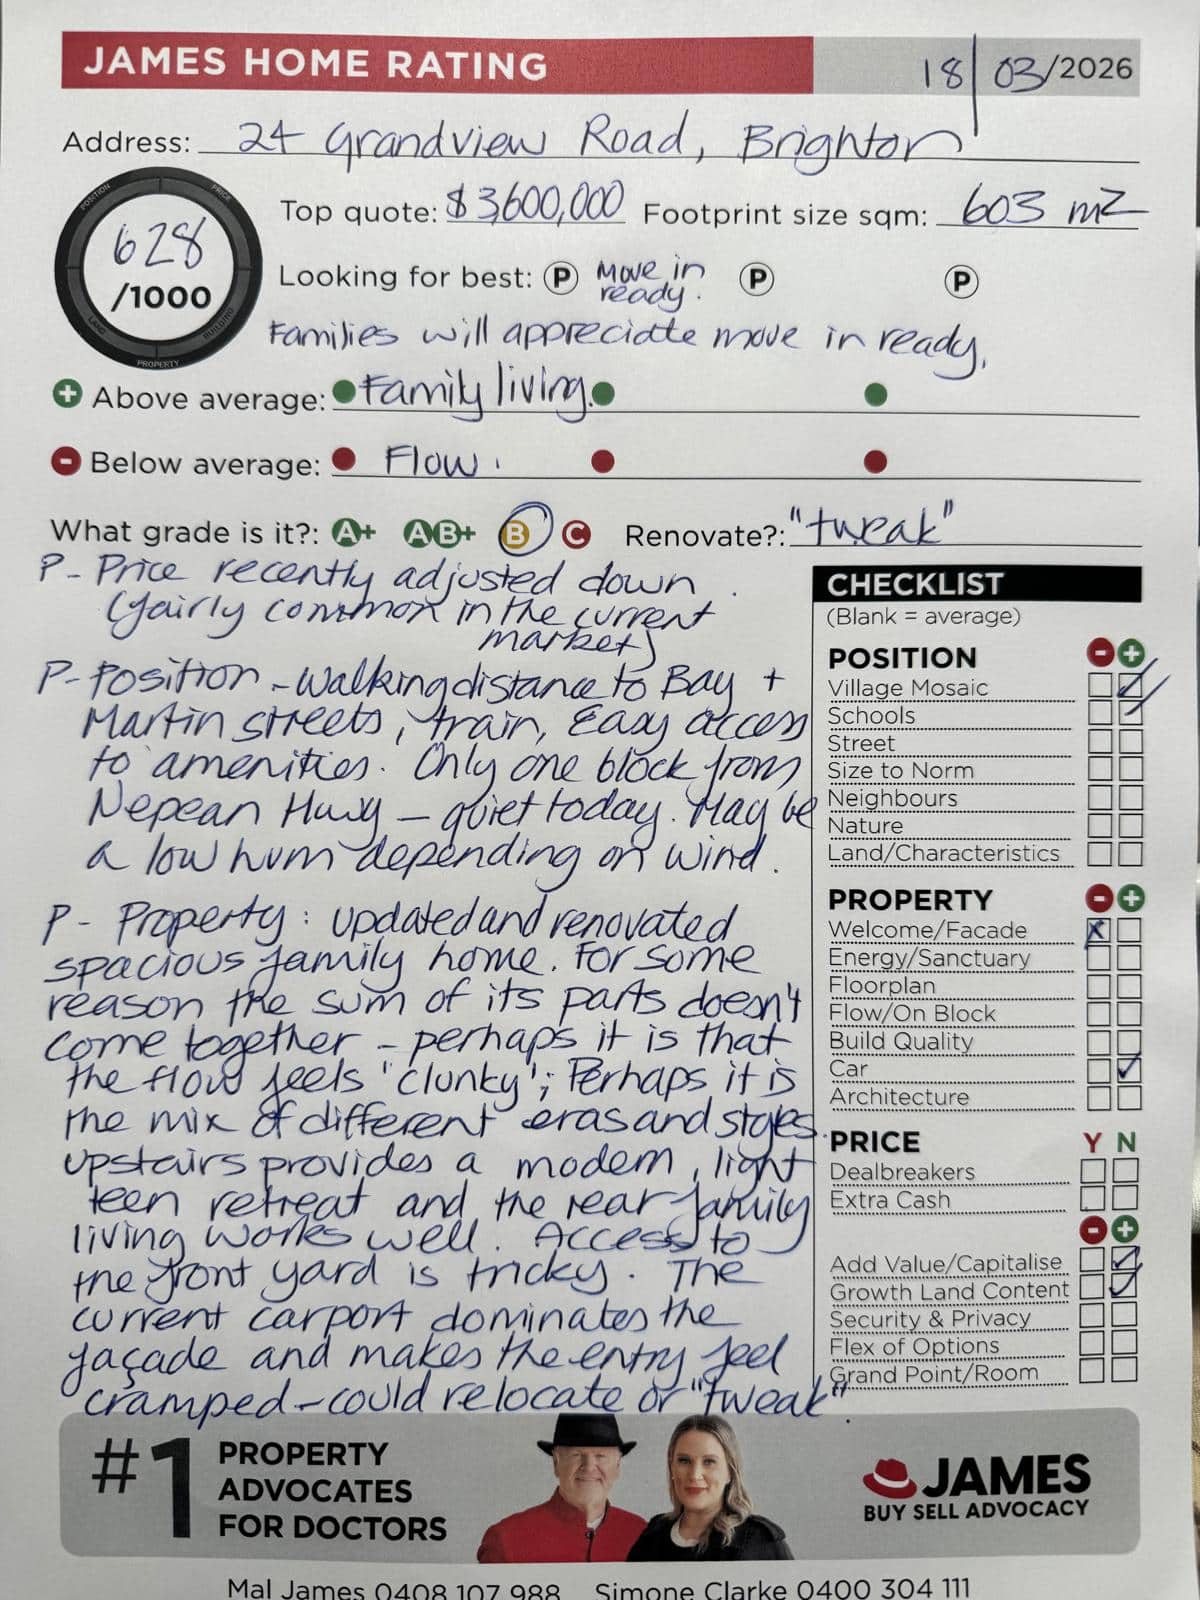 JAMES HOME RATING
18/03/2026
Address: 24 Grandview Road, Brighton
POSITION PRICE BUILDING PROPERTY LAND
628
/1000
Top quote: $3,600,000 Footprint size sqm: 603 m2
Looking for best: P Move in ready. P P
Families will appreciate move in ready.
+ Above average: Family living.
- Below average: Flow.
What grade is it?: A+ AB+ B C Renovate?: "tweak"
P - Price recently adjusted down.
(fairly common in the current
market)
P - Position - Walking distance to Bay +
Martin streets, train, Easy access
to amenities. Only one block from
Nepean Hwy - quiet today. May be
a low hum depending on wind.
P - Property: updated and renovated
spacious family home. For some
reason the sum of its parts doesn't
come together - perhaps it is that
the flow feels 'clunky'; Perhaps it is
the mix of different eras and styles.
Upstairs provides a modern, light
teen retreat and the rear family
living works well. Access to
the front yard is tricky. The
current carport dominates the
façade and makes the entry feel
cramped - could relocate or "tweak".
CHECKLIST
(Blank = average)
POSITION - +
Village Mosaic ✓
Schools
Street
Size to Norm
Neighbours
Nature
Land/Characteristics
PROPERTY - +
Welcome/Facade x
Energy/Sanctuary
Floorplan
Flow/On Block
Build Quality
Car ✓
Architecture
PRICE Y N
Dealbreakers
Extra Cash
- +
Add Value/Capitalise ✓
Growth Land Content ✓
Security & Privacy
Flex of Options
Grand Point/Room
#1 PROPERTY
ADVOCATES
FOR DOCTORS
JAMES
BUY SELL ADVOCACY
Mal James 0408 107 988 Simone Clarke 0400 304 111